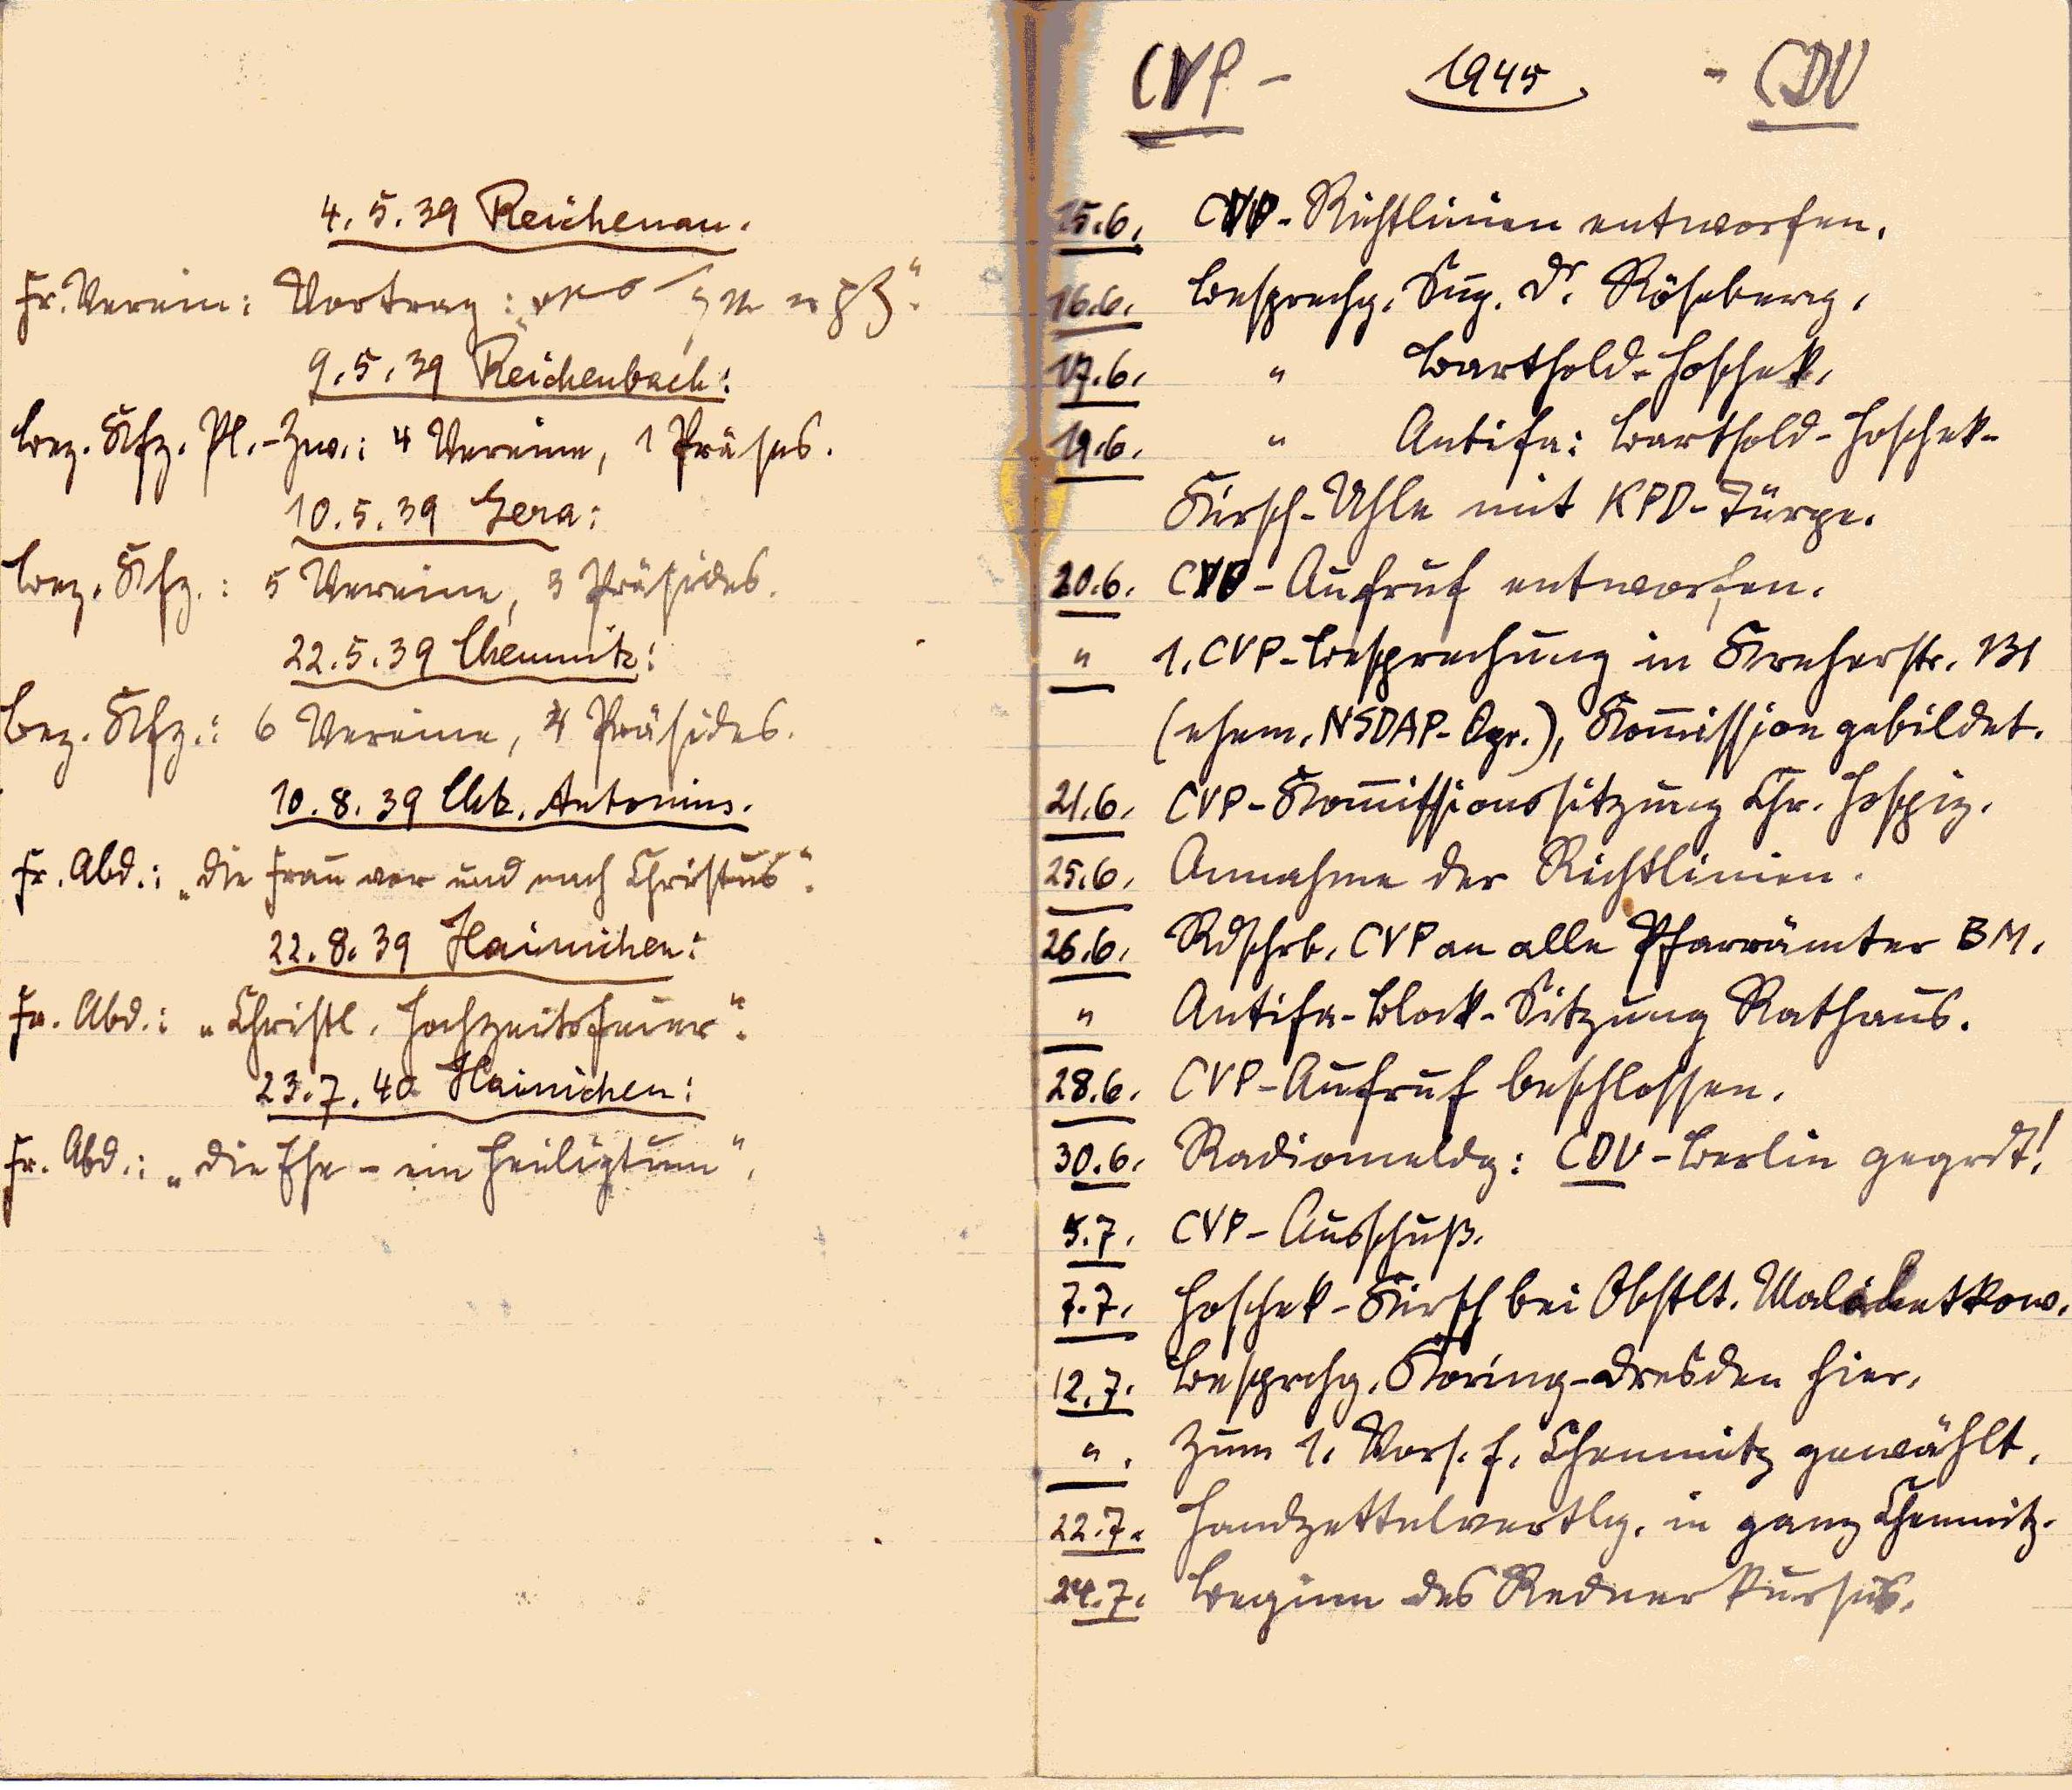 4.5.39 Reichenau.
Fr. Verein: Vortrag: „
9.5.39 Reichenbach:
Bez. Kfz. Pl.-Zw.: 4 Vereine, 1 Präses.
10.5.39 Gera:
Bez. Kfz.: 5 Vereine, 3 Präsides.
22.5.39 Chemnitz:
Bez. Kfz.: 6 Vereine, 4 Präsides.
10.8.39 Antonius.
Fr. Abd.: „Die Frau vor und nach Christus“.
22.8.39 Hainichen:
Fr. Abd.: „Christl. Hochzeitsfeier“.
23.7.40 Hainichen:
Fr. Abd.: „Die Ehe – ein Heiligtum“.
CVP – 1945 – CDU
15.6. CVP-Richtlinien entworfen.
16.6. Besprechg. Sup. Dr. Röseberg.
17.6. " Barthold-Hoschek.
19.6. " Antifa: Barthold-Hoschek-
Kirsch-Uhle mit KPD-Türpe.
20.6. CVP-Aufruf entworfen.
" 1. CVP-Besprechung in Kreherstr. 131
(ehem. NSDAP-Ogr.), Kom̅ission gebildet.
21.6. CVP-Kom̅issionssitzung Chr. Hospiz.
25.6. Annahme der Richtlinien.
26.6. Rdschrb. CVP an alle Pfarrämter BM.
" Antifa-Block-Sitzung Rathaus.
28.6. CVP-Aufruf beschlossen.
30.6. Radiomeldg: CDU-Berlin gegrdt!
5.7. CVP-Ausschuß.
7.7. Hoschek-Kirsch bei Obstlt.
12.7. Besprchg. Koring-Dresden hier.
". Zum 1. Vors. f. Chemnitz gewählt.
22.7. Handzettelvertlg. in ganz Chemnitz.
24.7. Beginn des Rednerkursus.